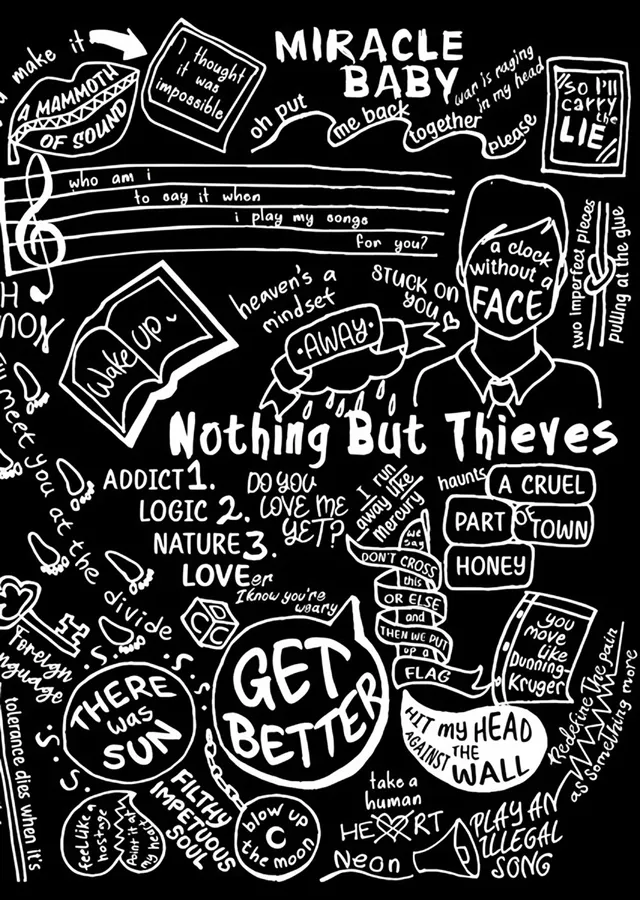 make it
A MAMMOTH
OF SOUND
I thought
it was
impossible
MIRACLE
BABY
oh put me back together please
war is raging
in my head
So I'll
carry
the
LIE
who am i
to say it when
i play my songs
for you?
a clock
without a
FACE
two imperfect pieces
pulling at the glue
heaven's a
mindset
STUCK ON
YOU
AWAY
Wake up
Nothing But Thieves
meet you at the divide
ADDICT 1.
LOGIC 2.
NATURE 3.
LOVEer
DO YOU
LOVE ME
YET?
I run
away like
mercury
haunts
A CRUEL
PART OF TOWN
HONEY
we
say
DON'T CROSS
this
OR ELSE
and
THEN WE PUT
up a
FLAG
I know you're
weary
you
move
like
Dunning
Kruger
Foreign
language
S.O.S.
THERE
was
SUN
S.O.S.
GET
BETTER
HIT my HEAD
AGAINST THE
WALL
Redefine the pain
as something more
tolerance dies when it's
feel like a
hostage
Point it at
my heart
FILTHY
IMPETUOUS
SOUL
blow up
the moon
take a
human
HEART
Neon
PLAY AN
ILLEGAL
SONG